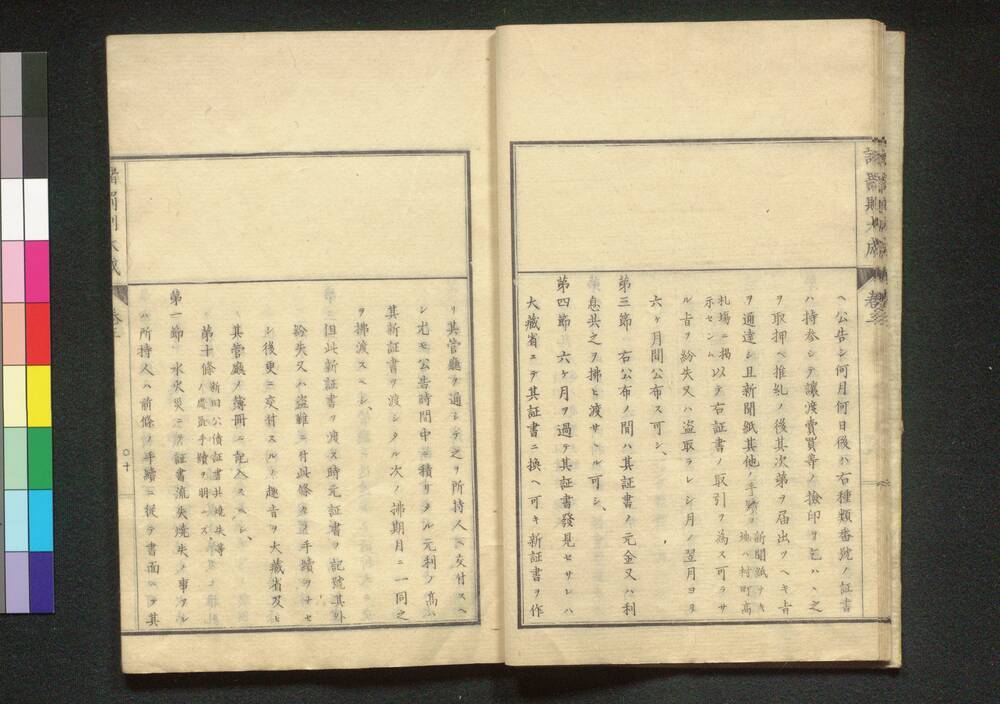 ヘ公告シ何月何日後ハ右種類番號ノ証書
ハ持參シテ讓渡賣買等ノ撿印ヲ乞ハヽ之
ヲ取押ヘ推糺ノ後其次第ヲ届出ツヘキ旨
ヲ通達シ且新聞紙其他ノ手續 新聞紙ナキ地ハ村町高
札場ニ掲示セシム 以テ右証書ノ取引ヲ為ス可ラサ
ル旨ヲ紛失又ハ盗取ラレシ月ノ翌月ヨリ
六ヶ月間公布ス可シ、
第三節 右公布ノ間ハ其証書ノ元金又ハ利
息共之ヲ拂ヒ渡サヽル可シ、
第四節 六ヶ月ヲ過テ其証書發見セサレハ
大藏省ニテ其証書ニ換ヘ可キ新証書ヲ作
リ其管廳ヲ通シテ之ヲ所持人ヘ交付スヘ
シ尤モ公告時間中ニ積リタル元利ノ高ハ
其新証書ヲ渡シタル次ノ拂期月ニ一同之
ヲ拂渡スヘシ、
但此新証書ヲ渡ス時元証書ノ記號其外
紛失又ハ盗難ニ付此條
手續ヲナセ
シ後更ニ交付スルノ趣旨ヲ大藏省及ヒ
其管廳ノ簿冊ニ記入スヘシ、
第十條 新旧公債証書共燒失等ノ處置手續ヲ明ニス
第一節 水火災ニテ証書流失燒失ノ事アル
ハ所持人ハ前條ノ手續ニ從テ書面ニテ其
〇十